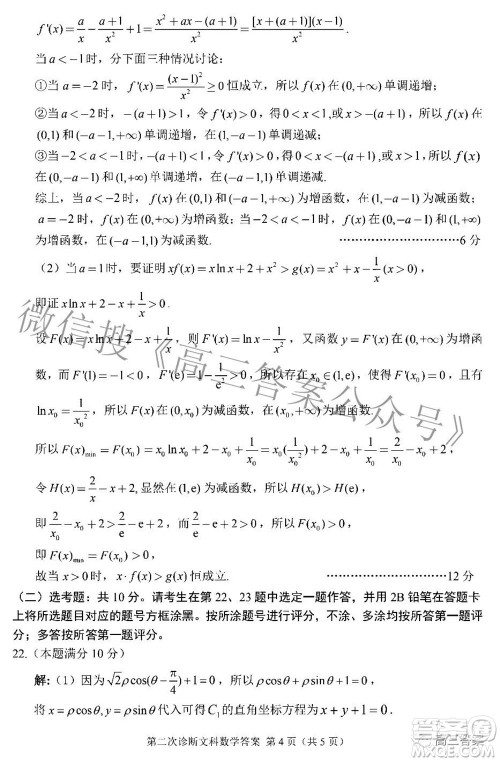 f'(x)=a/x-(a+1)/x²+1=(x²+ax-(a+1))/x²=([x+(a+1)](x-1))/x².
当a<-1时，分下面三种情况讨论：
①当a=-2时，f'(x)=(x-1)²/x²≥0恒成立，所以f(x)在(0,+∞)单调递增；
②当a<-2时，-(a+1)>1，令f'(x)>0，得0<x<1,或x>-(a+1)，所以f(x)在
(0,1)和(-a-1,+∞)单调递增，在(0,1)和(-a-1,+∞)单调递减；
③当-2<a<-1时，-(a+1)<1，令f'(x)>0，得0<x<-(a+1),或x>1，所以f(x)
在(0,-a-1)和(1,+∞)单调递增，在(0,-a-1)和(1,+∞)单调递减.
综上，当a<-2时，f(x)在(0,1)和(-a-1,+∞)为增函数，在(1,-a-1)为减函数；
a=-2时，f(x)在(0,+∞)为增函数；当-2<a<-1时，f(x)在(0,-a-1)和(1,+∞)
为增函数，在(-a-1,1)为减函数. ………………………………6分
（2）当a=1时，要证明xf(x)=xlnx+2+x²>g(x)=x²+x-1/x(x>0)，
即证xlnx+2-x+1/x>0.
设F(x)=xlnx+2-x+1/x，则F'(x)=lnx-1/x²，又函数y=F'(x)在(0,+∞)为增函
数，而F'(1)=-1<0，F'(e)=1-1/e²>0，所以存在x₀∈(1,e)，使得F'(x₀)=0，且
lnx₀=1/x₀²，所以F(x)在(0,x₀)为减函数，在(x₀,+∞)为增函数.
所以F(x)min=F(x₀)=x₀lnx₀+2-x₀+1/x₀=x₀(1/x₀²)+2-x₀+1/x₀=2/x₀-x₀+2，
令H(x)=2/x-x+2,显然在(1,e)为减函数，所以H(x₀)>H(e)，
即2/x₀-x₀+2>2/e-e+2>0，所以F(x₀)>0，
即F(x)min=F(x₀)>0.
故当x>0时，x·f(x)>g(x)恒成立. ………………………………12分
（二）选考题：共10分。请考生在第22、23题中选定一题作答，并用2B铅笔在答题卡
上将所选题目对应的题号方框涂黑。按所涂题号进行评分，不涂、多涂均按所答第一题评
分；多答按所答第一题评分。
22.（本题满分10分）
解:（1）因为√2ρcos(θ-π/4)+1=0，所以ρcosθ+ρsinθ+1=0，
将x=ρcosθ,y=ρsinθ代入可得C₁的直角坐标方程为x+y+1=0.
第二次诊断文科数学答案 第4页（共5页）
微信搜《高三答案公众号》
高三答案